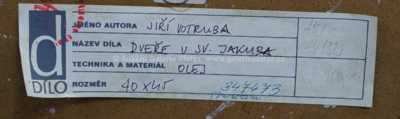 JMÉNO AUTORA JIŘÍ VOTRUBA
NÁZEV DÍLA DVEŘE U SV. JAKUBA
TECHNIKA A MATERIÁL OLEJ
ROZMĚR 40x45 347473
d
DÍLO